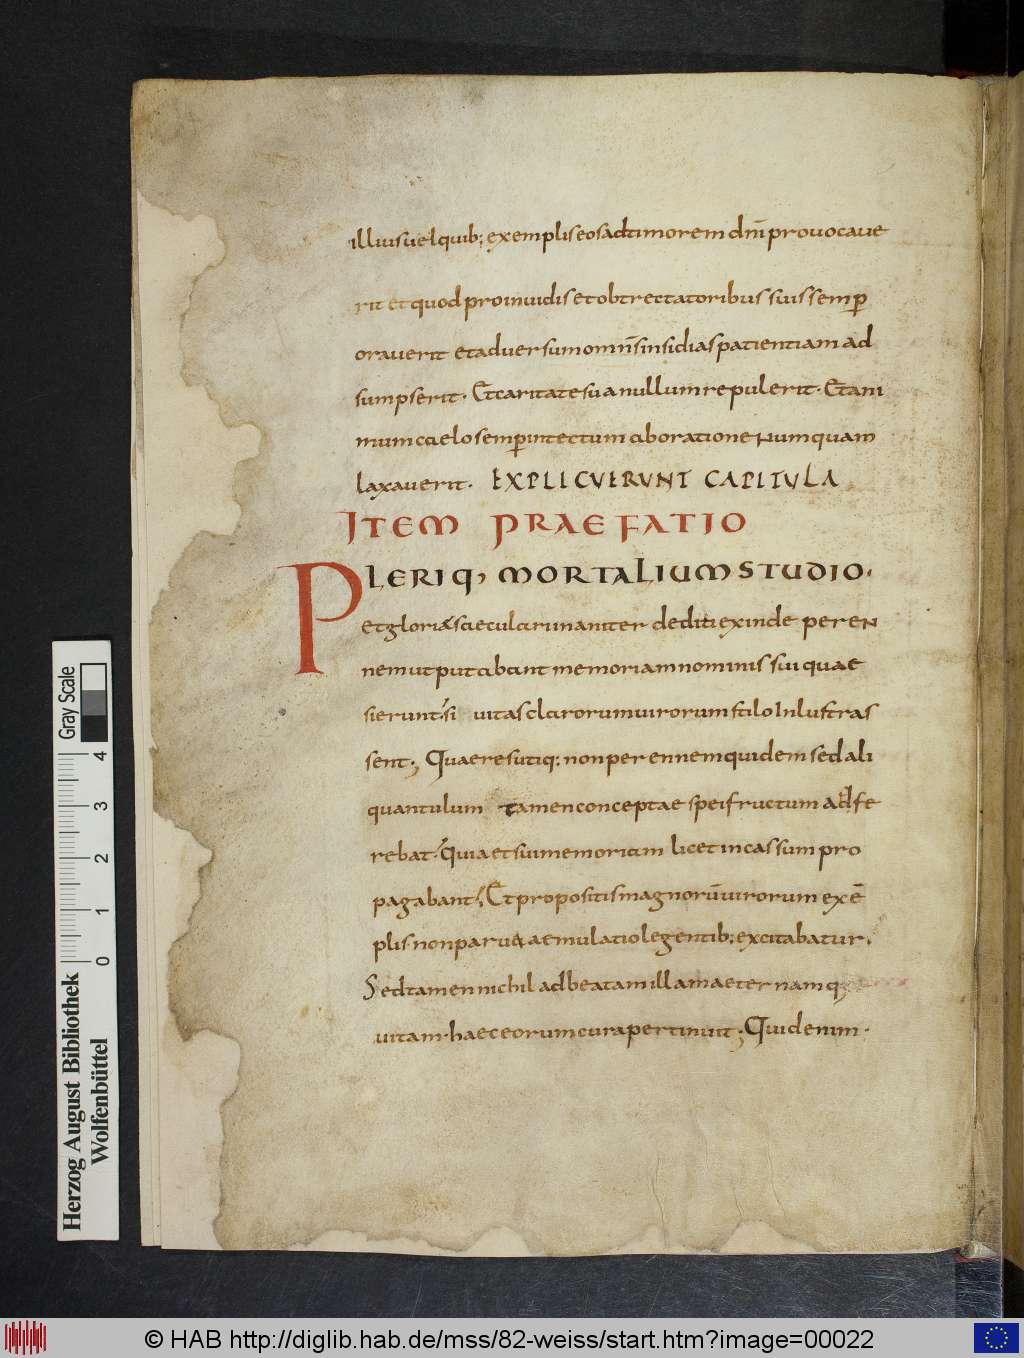 illius uel quib; exemplis eos ad timorem dnī prouocaue
rit et quod pro inuidis et obtrectatoribus suis semp̄
orauerit et aduersum omnīs insidias patientiam ad
sumpserit. Et caritate sua nullum repulerit. Et ani
mum caelo semp̄ intectum ab oratione numquam
laxauerit. EXPLICUERUNT CAPITULA
ITEM PRAEFATIO
PLERIQ, MORTALIUM STUDIO.
et gloriae saeculari inaniter dediti exinde peren
nem ut putabant memoriam nominis sui quae
sierunt. si uitas clarorum uirorum stilo inlustras
sent; Quae res utiq: non perennem quidem sed ali
quantulum tamen conceptae spei fructum adfe
rebat. Quia et sui memoriam licet incassum pro
pagabant. Et propositis magnorū uirorum exē
plis. non parua aemulatio legentib; excitabatur.
Sed tamen nichil ad beatam illam aeternamq;
uitam. haec eorum cura pertinuit; Quid enim.
Gray Scale
4 3 2 1 0
Herzog August Bibliothek
Wolfenbüttel
© HAB http://diglib.hab.de/mss/82-weiss/start.htm?image=00022